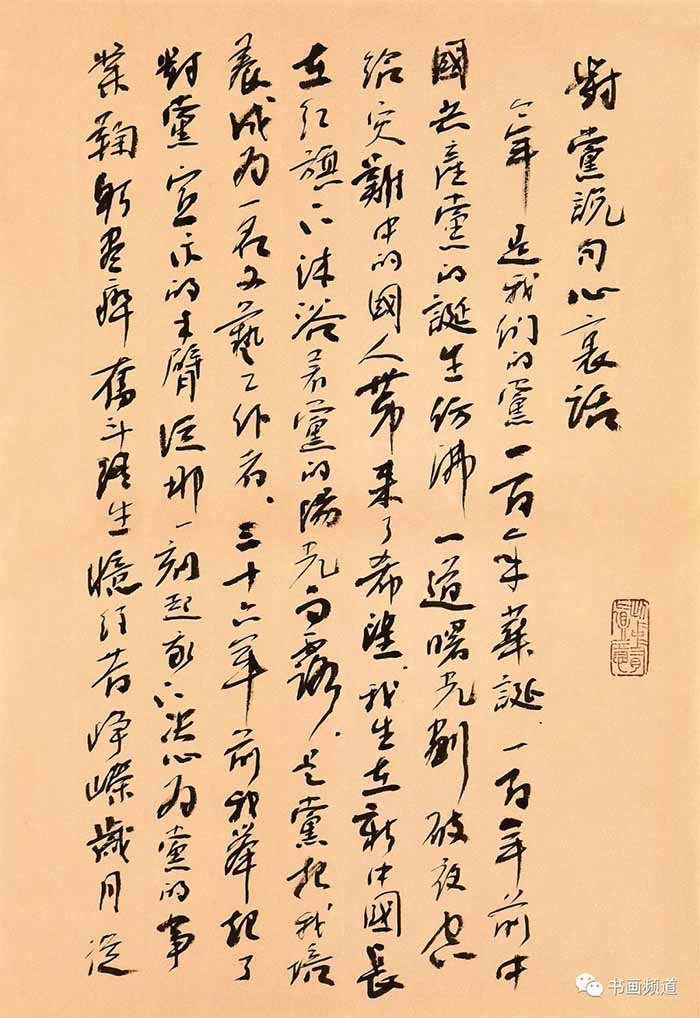 對黨説句心裏話
今年是我们的黨一百年華誕一百年前中
國共產黨的誕生仿沸一道曙光劃破夜空
给灾難中的國人带来了希望.我生在新中國長
在红旗下沐浴着黨的陽光雨露.是黨把我培
養成为一名文藝工作者.三十六年前我举起了
對黨宣示的手臂從那一刻起我下决心为黨的事
業鞠躬盡瘁奮斗終生憶往昔峥嵘歲月從
书画频道